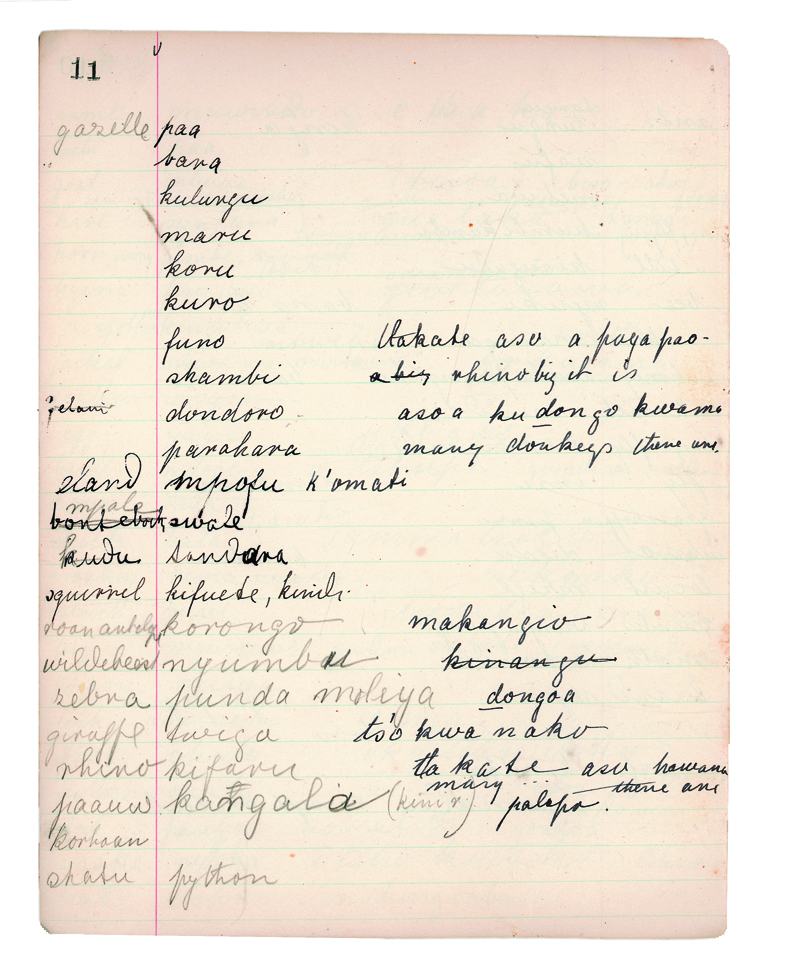 11
gazelle paa
bara
kulungu
maru
koru
kuro
funo tlakate aso a paga pao-
shambi a big rhino big it is
dondoro aso a ku dongo kwama
parahara many donkeys there are.
eland mpofu k'omati
mpale
bontebock, swale
kudu tandara
squirrel kifuete, kindi.
roan antelope korongo makangio
wildebeest nyumbu kinangu
zebra punda moliya dongoa
giraffe twiga ts'o kwa nako
rhino kifaru tlakate aso hawana
many there are
paauw kangala (kinir) palapo.
korhaan
shatu python